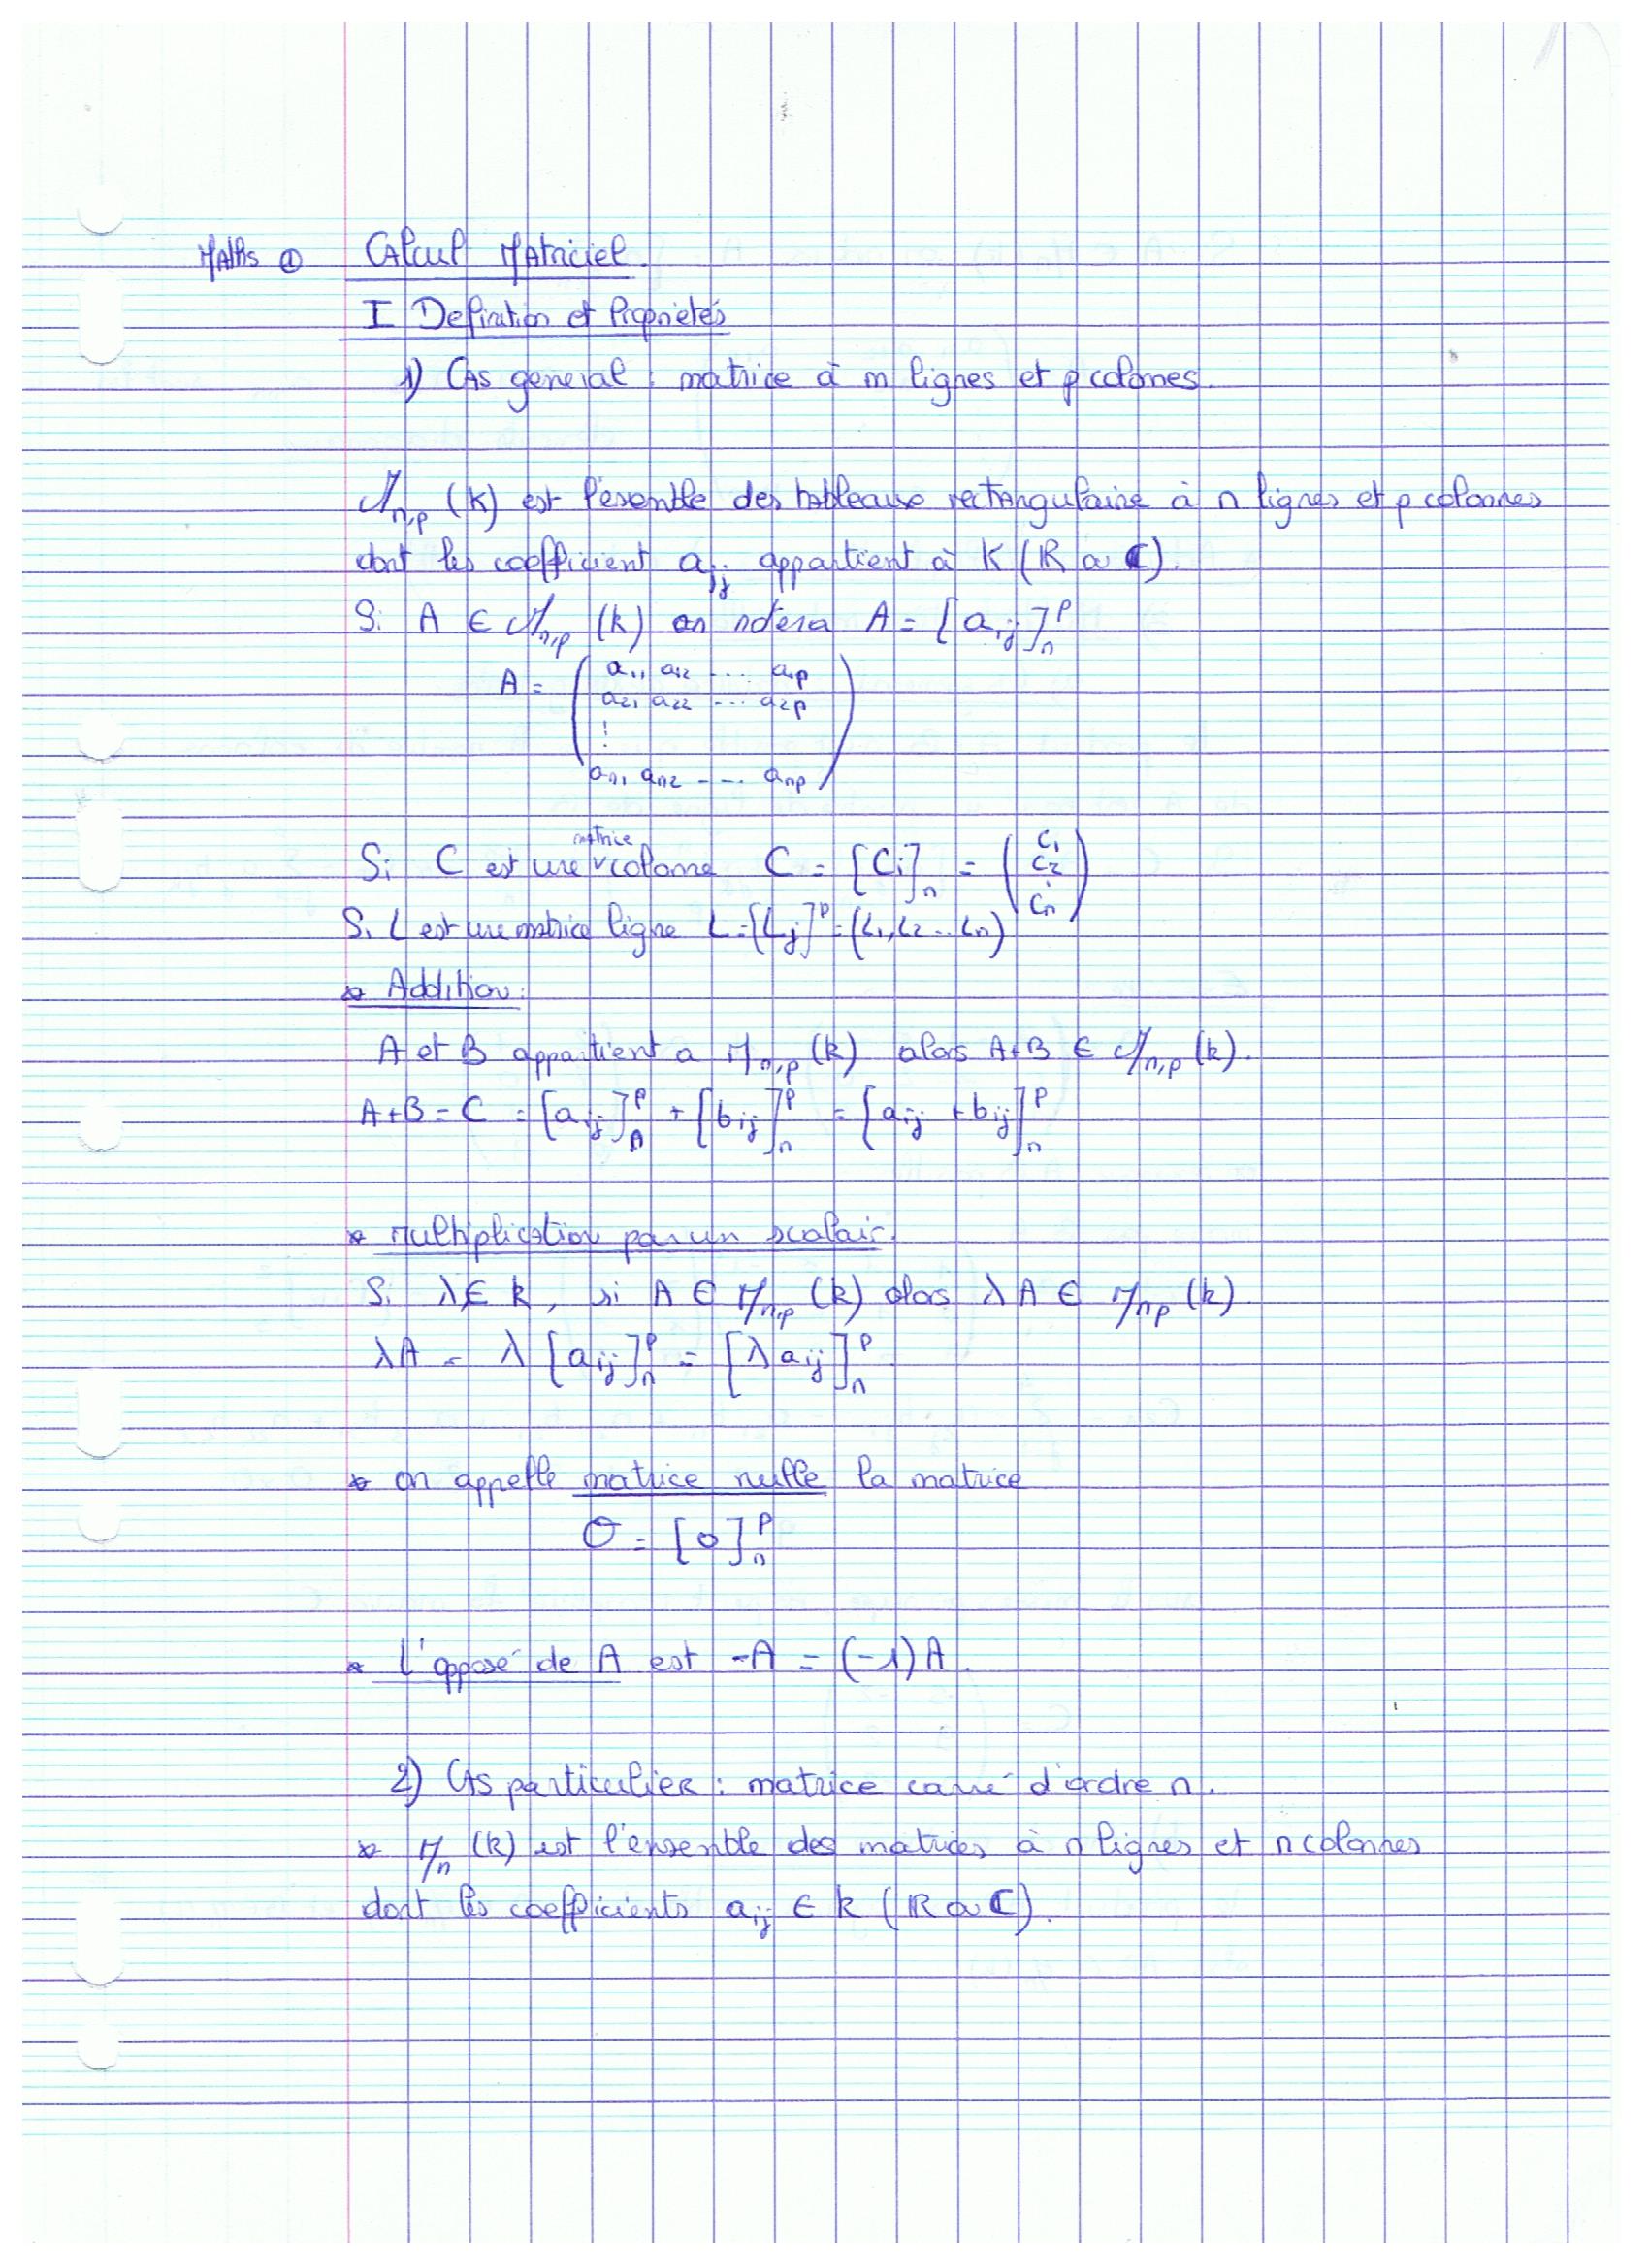 Maths ① Calcul Matriciel.
I Definition et Propriétés
1) Cas general : matrice à m lignes et p colonnes.
M_{n,p} (K) est l'esemble des tableaux rectangulaire à n lignes et p colonnes
dont les coefficient a_{ij} appartient à K (R ou C).
Si A ∈ M_{n,p} (k) on notera A = [a_{ij}]_n^p
A = ( a_{11} a_{12} ... a_{1p}
a_{21} a_{22} ... a_{2p}
⋮
a_{n1} a_{n2} ... a_{np} )
Si C est une matrice colonne C = [C_i]_n = ( C_1 C_2 ⋮ C_n )
Si L est une matrice ligne L = [L_j]^p = (L_1, L_2 ... L_n)
* Addition :
A et B appartient a M_{n,p} (k) alors A+B ∈ M_{n,p} (k).
A+B = C = [a_{ij}]_n^p + [b_{ij}]_n^p = [a_{ij} + b_{ij}]_n^p
* Multiplication par un scalair.
Si λ ∈ k, si A ∈ M_{n,p} (k) alors λ A ∈ M_{np} (k)
λA = λ [a_{ij}]_n^p = [λ a_{ij}]_n^p
* on appelle matrice nulle la matrice
O = [0]_n^p
* L'opposé de A est -A = (-1) A.
2) Cas particulier : matrice carré d'ordre n.
* M_n (k) est l'ensemble des matrices à n lignes et n colonnes
dont les coefficients a_{ij} ∈ k (R ou C).